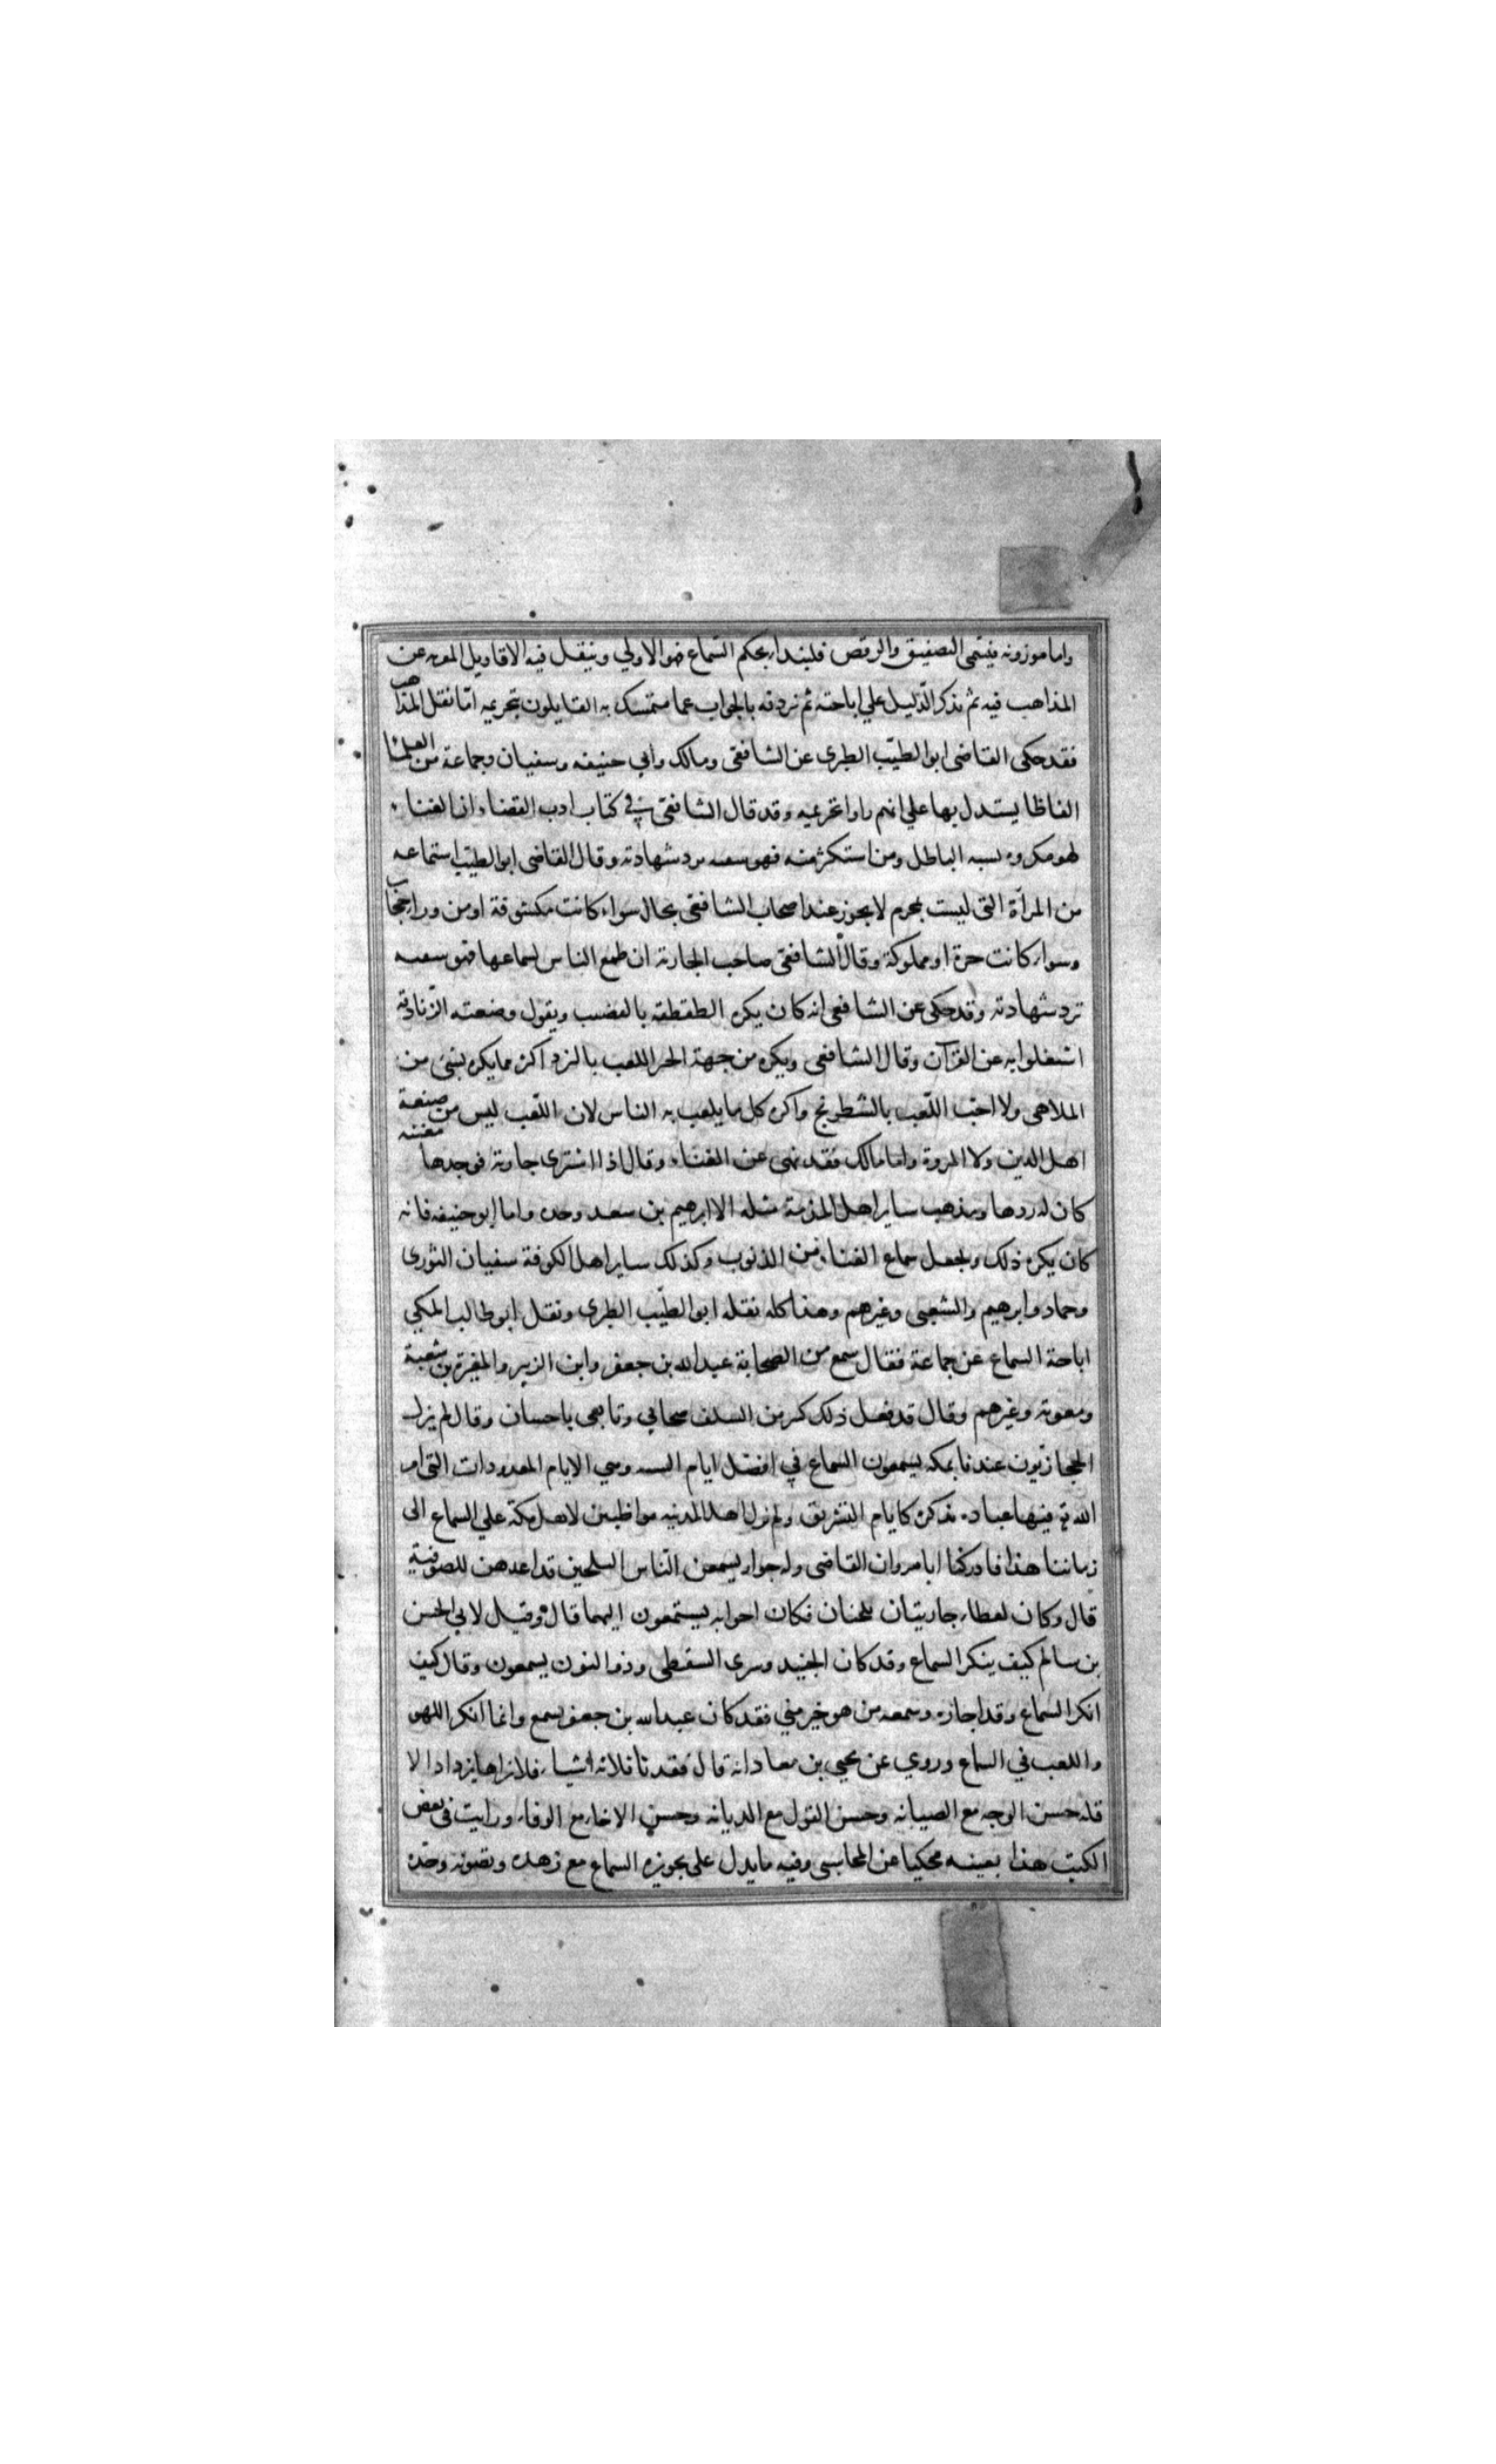 واما موزونه فيسمى التصفيق والرقص فلنبدا بحكم السماع هو الاولي وينقل فيه الاقاويل المعربه عن
المذاهب فيه ثم نذكر الدّليل علي اباحته ثم نردفه بالجواب عما متمسك به القايلون بتحريمه امّا نقل المذاهب
فقد حكى القاضى ابو الطيّب الطبرى عن الشافعى ومالك وابي حنيفه وسفيان وجماعة من العلماء
الفاظا يستدل بها علي انهم راوا تحريمه وقد قال الشافعى في كتاب ادب القضاء ان الغناء
لهو مكروه يسبه الباطل ومن استكثر منه فهو سفيه ترد شهادته وقال القاضى ابو الطيّب استماعه
من المرأة التى ليست بمحرم لا يجوز عند اصحاب الشافعى بحال سواء كانت مكشوفة او من وراء حجاب
وسواء كانت حرة او مملوكة وقال الشافعى صاحب الجارية ان طمع الناس لسماعها فهو سفيه
ترد شهادته وقد حكى عن الشافعى انه كان يكره الطقطقه بالقضيب ويقول وضعته الزّنادقة
اشتغلوا به عن القرآن وقال الشافعى ويكره من جهة الخبر اللعب بالنرد اكثر مما يكره بشئ من
الملاهى ولا احبّ اللّعب بالشطرنج واكره كل ما يلعب به الناس لان اللّعب ليس من صنعة
اهل الدين ولا المروة واما مالك فقد نهى عن الغناء وقال اذا اشترى جارية فوجدها مغنيه
كان له ردها ومذهب ساير اهل المدينة مثله الا ابرهيم بن سعد وحده واما ابو حنيفه فانه
كان يكره ذلك ويجعل سماع الغناء من الذنوب وكذلك ساير اهل الكوفة سفيان الثورى
وحماد وابرهيم والشعبى وغيرهم وهذا كله نقله ابو الطيّب الطبرى ونقل ابو طالب المكي
اباحة السماع عن جماعة فقال سمع من الصحابة عبد الله بن جعفر وابن الزبير والمغيرة بن شعبة
ومعوية وغيرهم وقال قد فعل ذلك كثير من السلف صحابي وتابعى باحسان وقال لم يزل
الحجازيون عندنا بمكه يسمعون السماع في افضل ايام السنه وهي الايام المعدودات التى امر
الله تع فيها عباده بذكره كايام التشريق ولم يزل اهل المدنيه مواظبين لاهل مكة علي السماع الى
زماننا هذا فادركنا ابا مروان القاضى وله جوار يسمعن النّاس السلحين قد اعدهن للصوفية
قال وكان لعطاء جاريتان تلحنان فكان اخوانه يستمعون اليهما قال وقيل لابي الحسن
بن سالم كيف ينكر السماع وقد كان الجنيد وسرى السقطى وذو النون يسمعون وقال كيف
انكر السماع وقد اجازه وسمعه من هو خير مني فقد كان عبد الله بن جعفر يسمع وانما انكر اللهو
واللعب في السماع وروي عن يحيى بن معاد انه قال فقدنا ثلاثه اشياء فلا نراها يزداد الا
قله حسن الوجه مع الصيانه وحسن القول مع الديانه وحسن الاخاء مع الوفاء ورايت فى بعض
الكتب هذا بعينه محكيا عن المحاسبى وفيه ما يدل على تجويزه السماع مع زهده وتصونه وجده